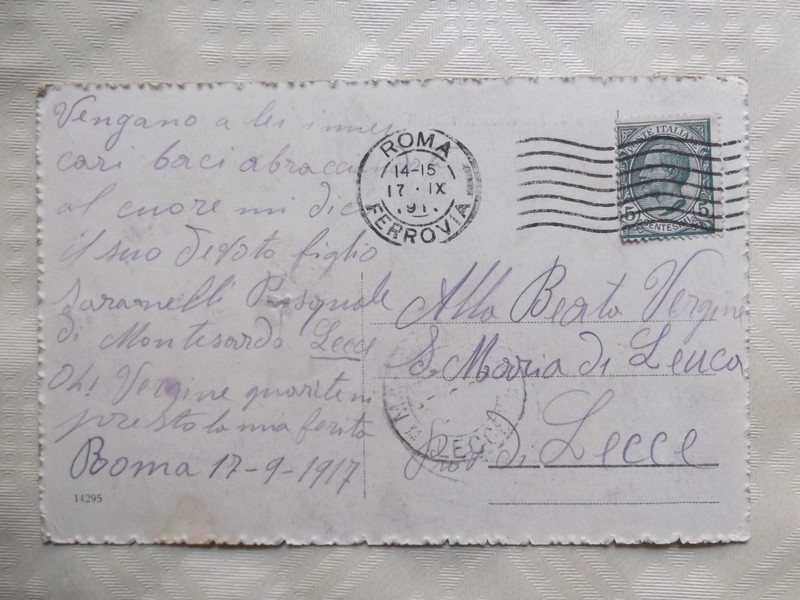 Vengano a lei i miei
cari baci abbracciandola
al cuore mi dico
il suo devoto figlio
Saranelli Pasquale
di Montesardo Lecce
Oh! Vergine guaritemi
presto la mia ferita
Roma 17-9-1917
14295
ROMA
14-15
17 · IX
191
FERROVIA
POSTE ITALIANE
5 5
CENTESIMI
Alla Beata Vergine
S. Maria di Leuca
Prov di Lecce
LECCE